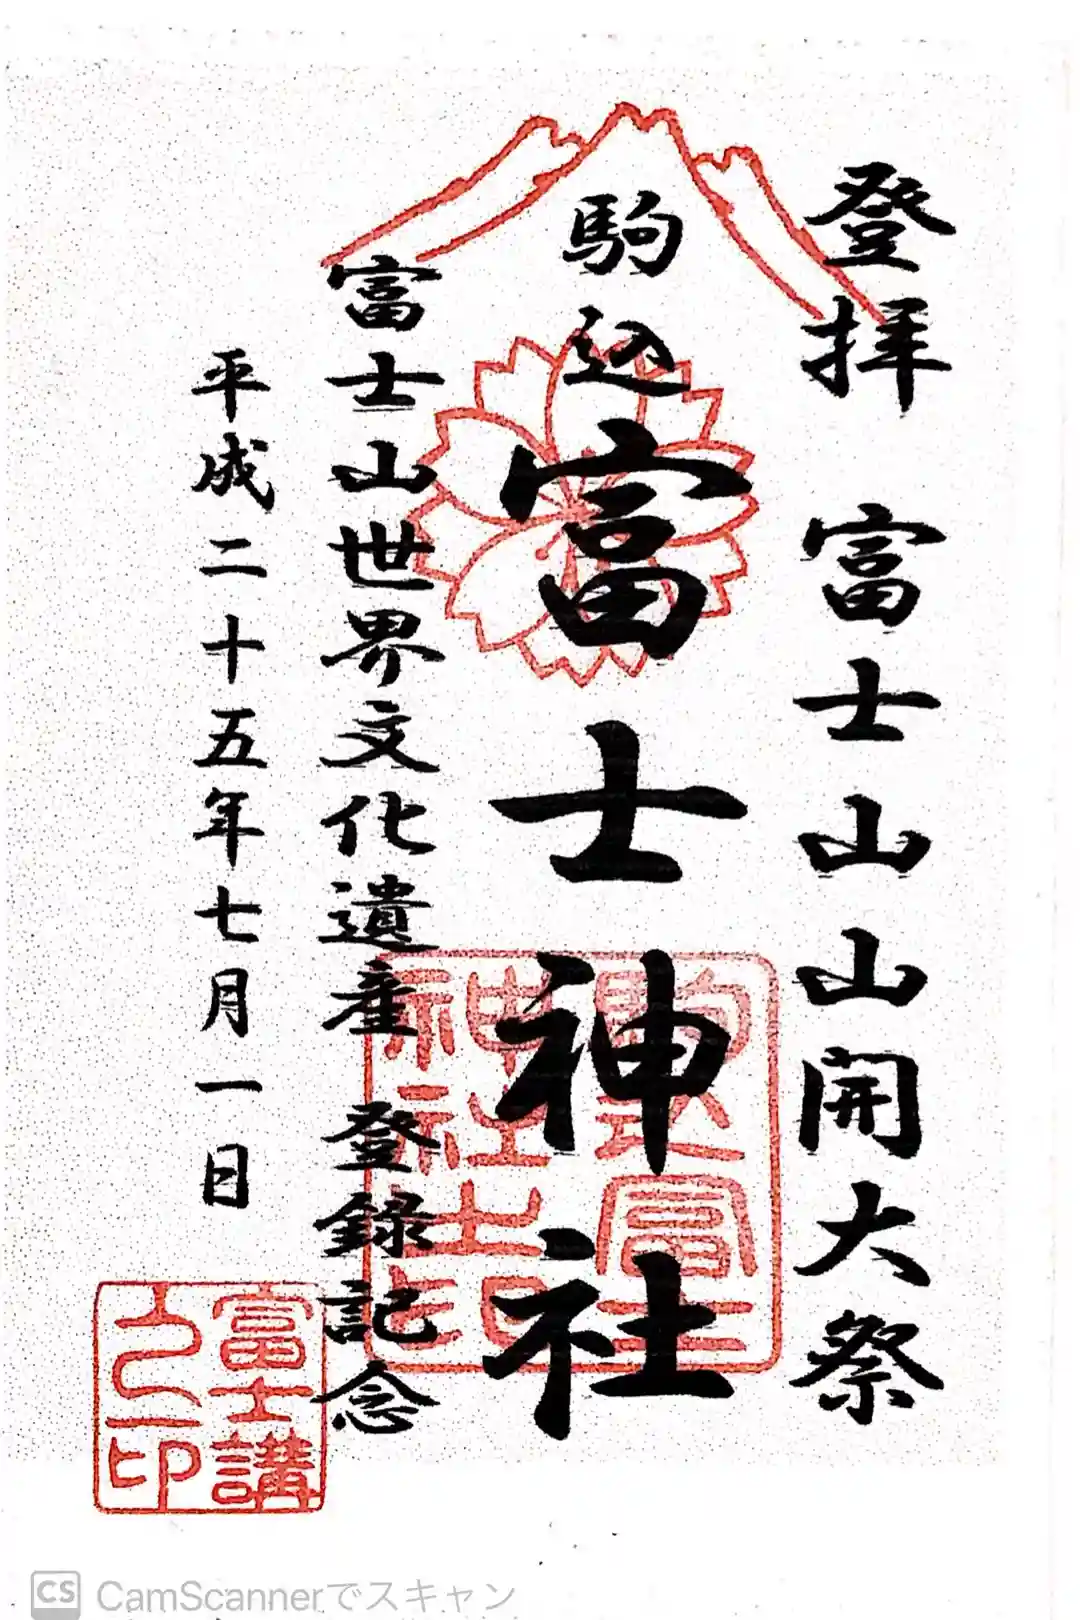 登拝 富士山山開大祭
駒込富士神社
富士山世界文化遺産 登録記念
平成二十五年七月一日
富士講
之印
CS CamScannerでスキャン